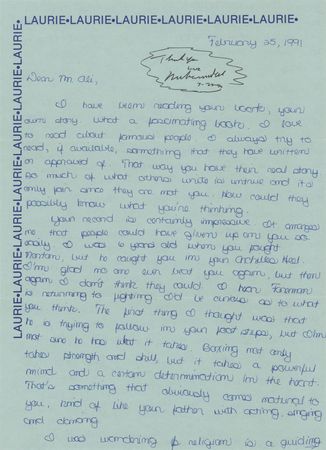 LAURIE•LAURIE•LAURIE•LAURIE•LAURIE•LAURIE•LAURIE•
LAURIE•LAURIE•LAURIE•LAURIE•LAURIE•LAURIE•LAURIE•LAURIE•
February 25, 1991
Thank you
love
Muhammad
Dear Mr. Ali,
I have been reading your book, your
own story. What a fascinating book. I love
to read about famous people. I always try to
read, if available, something that they have written
or approved of. That way you have their real story.
So much of what others write is untrue and it's
only fair since they are not you. How could they
possibly know what you're thinking.
Your record is certainly impressive. It
me that people could have given up on you so
easily. I was 6 years old when you fought
Norton, but he caught you in your Achilles Heel.
I'm glad no one ever beat you again, but then
again I don't think they could. I hear Foreman
is returning to fighting. I'd be curious as to what
you think. The first thing I thought was that
he is trying to follow in your foot steps, but I'm
not sure he has what it takes. Boxing not only
takes strength and skill, but it takes a powerful
mind and a certain determination in the heart.
That's something that obviously comes natural to
you, kind of like your father with acting, singing
and dancing.
I was wondering if religion is a guiding